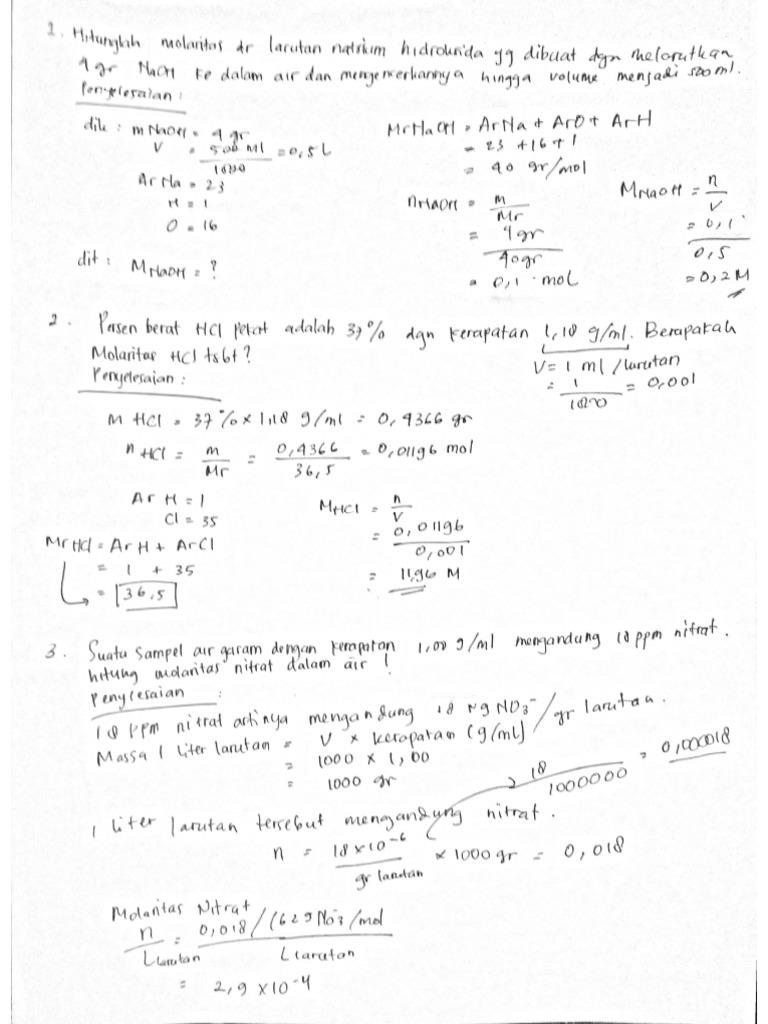 1. Hitunglah molaritas dr larutan natrium hidroksida yg dibuat dgn melarutkan
4 gr NaOH ke dalam air dan mengencerkannya hingga volume menjadi 500 ml.
Penyelesaian :
dik : m NaOH = 4 gr
V = 500 ml / 1000 = 0,5 L
Ar Na = 23
H = 1
O = 16
dit : M NaOH = ?
Mr NaOH = Ar Na + Ar O + Ar H
= 23 + 16 + 1
= 40 gr/mol
n NaOH = m / Mr
= 4 gr / 40 gr
= 0,1 mol
M NaOH = n / V
= 0,1 / 0,5
= 0,2 M
2. Persen berat HCl pekat adalah 37% dgn kerapatan 1,18 g/ml. Berapakah
Molaritas HCl tsbt ?
Penyelesaian :
V = 1 ml / larutan
= 1 / 1000 = 0,001
M HCl = 37% x 1,18 g/ml = 0,4366 gr
n HCl = m / Mr = 0,4366 / 36,5 = 0,01196 mol
Ar H = 1
Cl = 35
Mr HCl = Ar H + Ar Cl
= 1 + 35
= 36,5
M HCl = n / V
= 0,01196 / 0,001
= 11,96 M
3. Suatu sampel air garam dengan kerapatan 1,00 g/ml mengandung 18 ppm nitrat.
hitung molaritas nitrat dalam air !
Penyelesaian :
18 ppm nitrat artinya mengandung 18 Ng NO3⁻ / gr larutan.
Massa 1 liter larutan = V x kerapatan (g/ml)
= 1000 x 1,00
= 1000 gr
18 / 1000000 = 0,000018
1 liter larutan tersebut mengandung nitrat.
n = 18 x 10⁻⁶ / gr larutan x 1000 gr = 0,018
Molaritas Nitrat
n / L larutan = 0,018 / (62 g NO3 / mol / L larutan
= 2,9 x 10⁻⁴